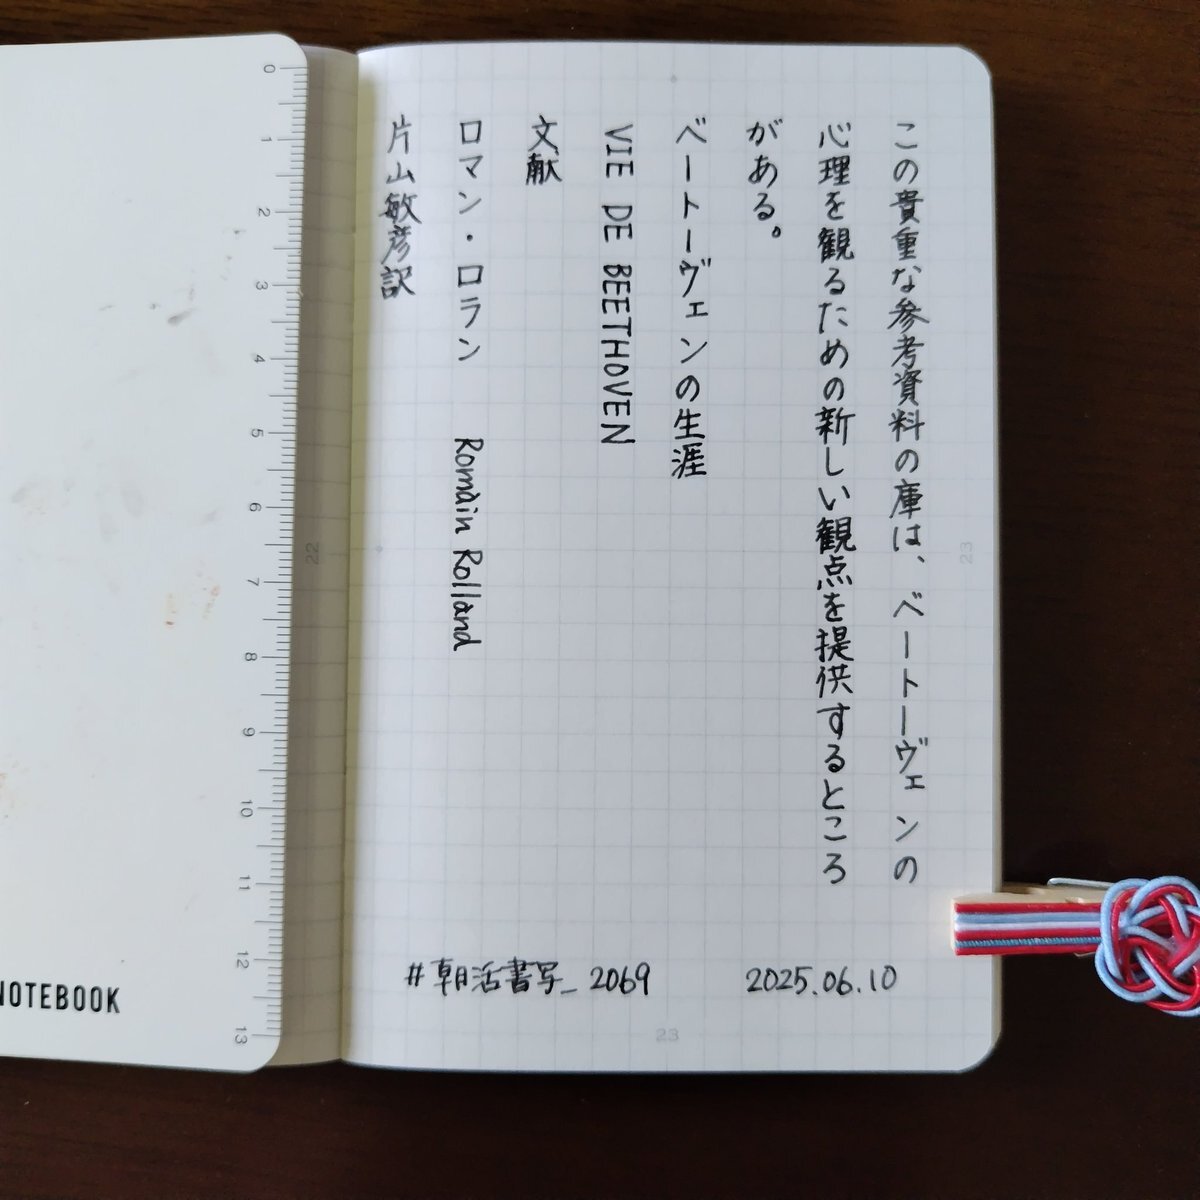 この貴重な参考資料の庫は、ベートーヴェンの
心理を観るための新しい観点を提供するところ
がある。
ベートーヴェンの生涯
VIE DE BEETHOVEN
文献
ロマン・ロラン Romain Rolland
片山敏彦訳
#朝活書写_2069
2025.06.10
23
23
22
0
1
2
3
4
5
6
7
8
9
10
11
12
13
NOTEBOOK